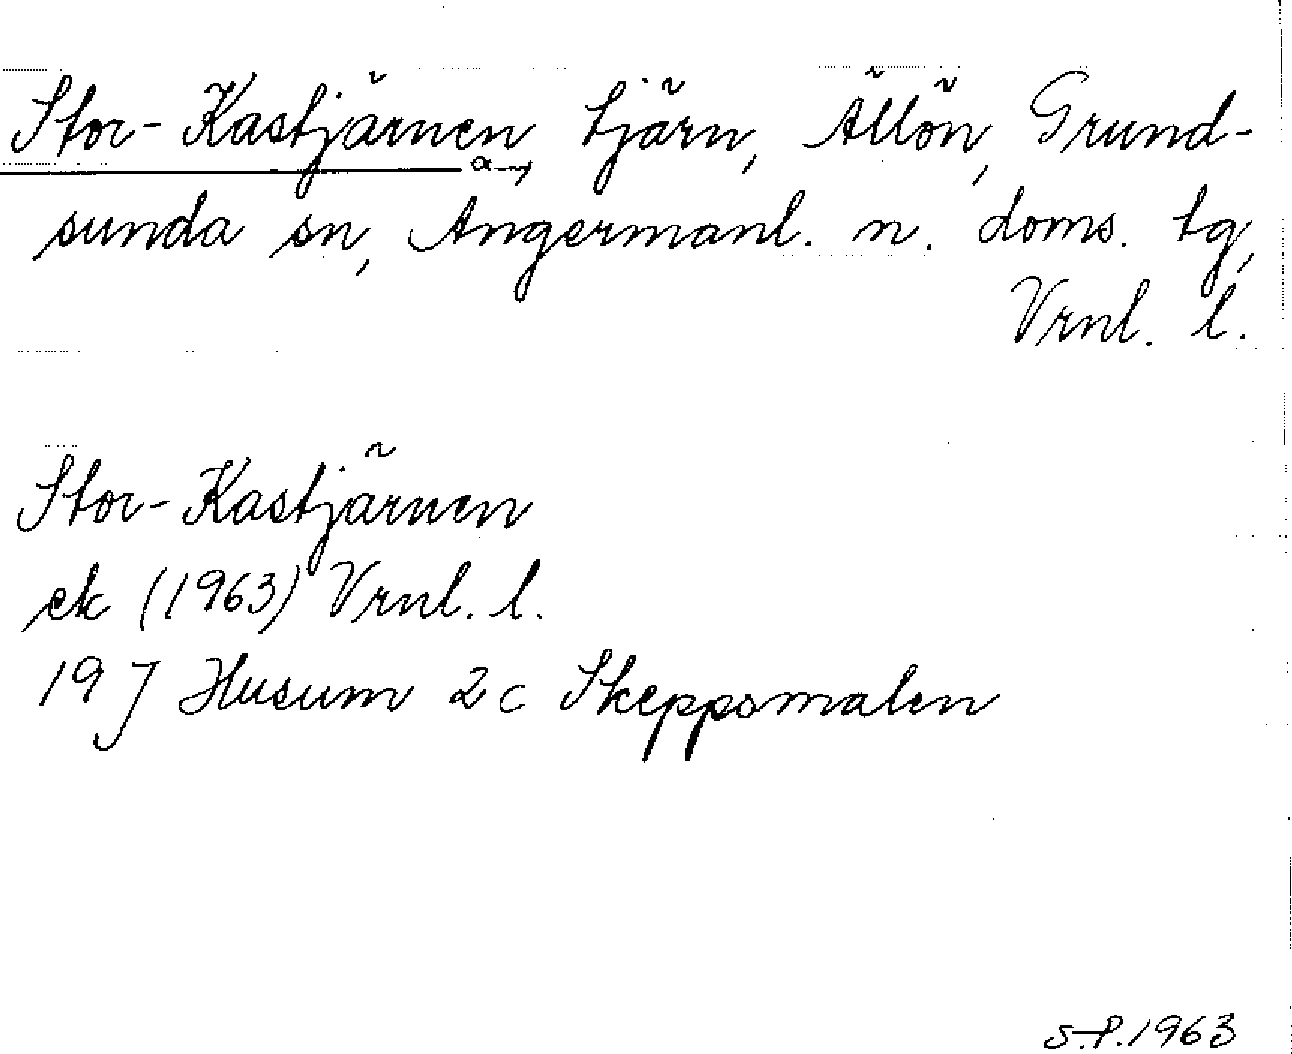 Stor-Kastjärnen, tjärn, Ällön, Grund-
sunda sn, Angermanl. n. doms. tg,
Vrnl. l.
Stor-Kastjärnen
ek (1963) Vrnl. l.
19 J Husum 2c Skeppsmalen
S.P. 1963